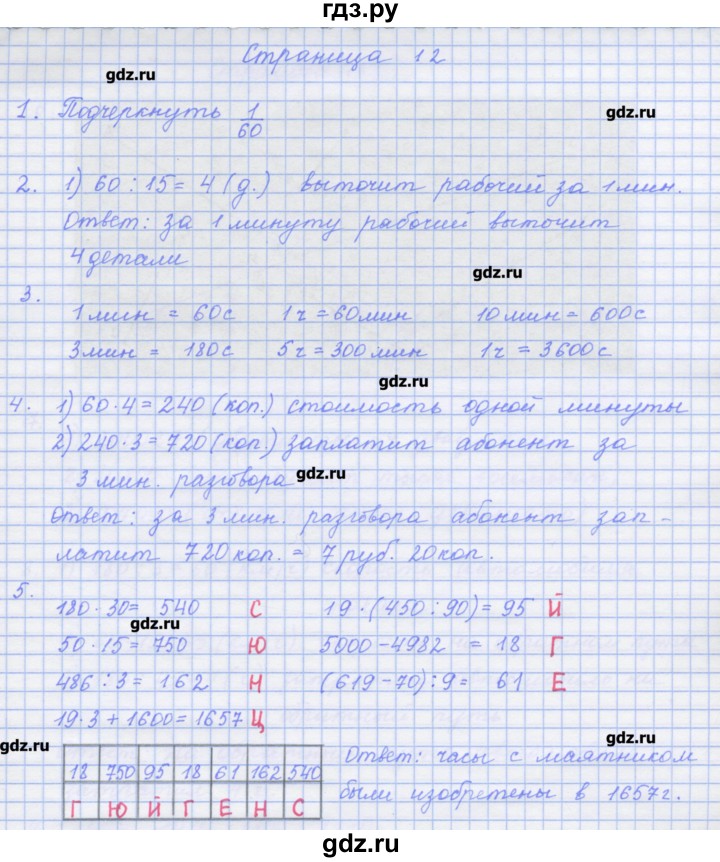 гдз.ру
Страница 12
gdz.ru
1. Подчеркнуть 1/60
gdz.ru
2. 1) 60 : 15 = 4 (д.) выточит рабочий за 1 мин.
Ответ: за 1 минуту рабочий выточит
4 детали
gdz.ru
3.
1 мин = 60 с 1 ч = 60 мин 10 мин = 600 с
3 мин = 180 с 5 ч = 300 мин 1 ч = 3600 с
gdz.ru
4. 1) 60 · 4 = 240 (коп.) стоимость одной минуты
2) 240 · 3 = 720 (коп.) заплатит абонент за
3 мин. разговора
gdz.ru
Ответ: за 3 мин. разговора абонент зап-
латит 720 коп. = 7 руб. 20 коп.
5.
180 · 30 = 540 С 19 · (450 : 90) = 95 Й
gdz.ru
50 · 15 = 750 Ю 5000 - 4982 = 18 Г
486 : 3 = 162 Н (619 - 70) : 9 = 61 Е
19 · 3 + 1600 = 1657 Ц
gdz.ru
gdz.ru
18 750 95 18 61 162 540
Г Ю Й Г Е Н С
Ответ: часы с маятником
были изобретены в 1657 г.
gdz.ru